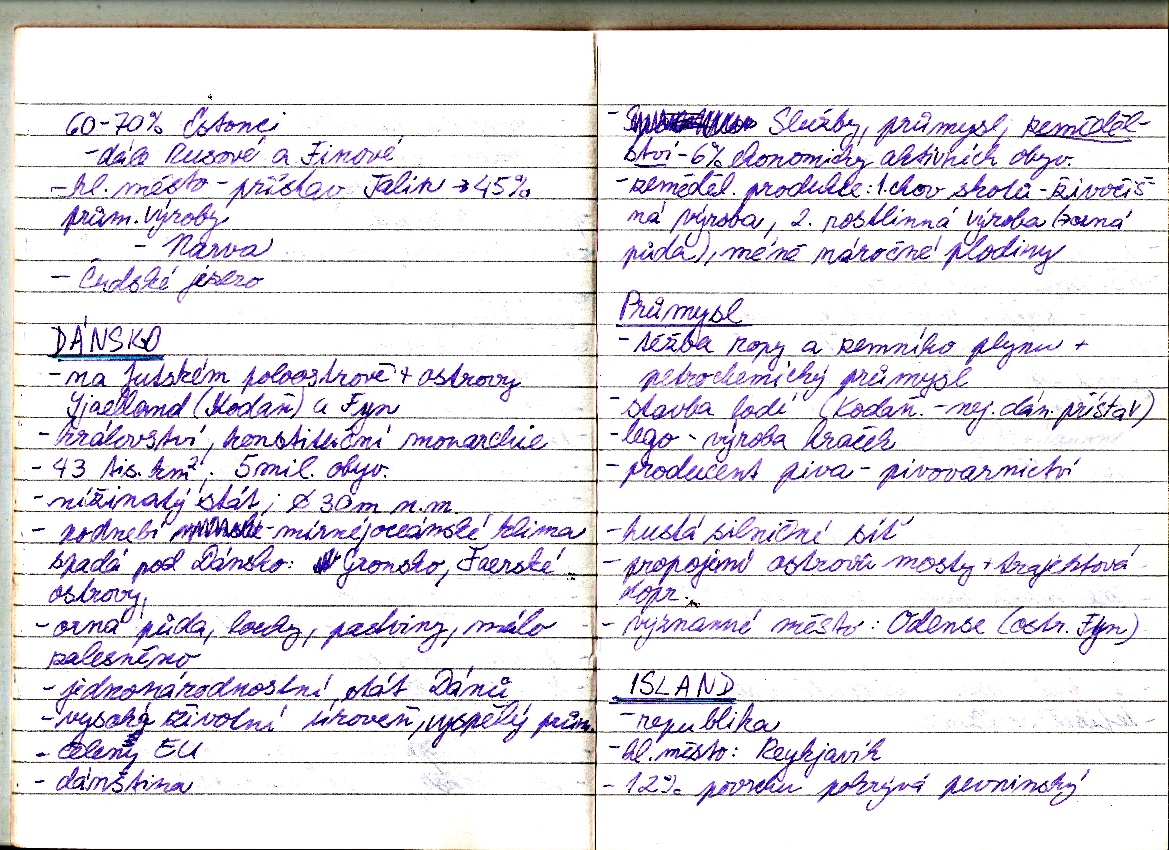 60-70% Estonci
-dále Rusové a Finové
- hl. město - přístav Talin → 45%
prům. výroby
- Narva
- Čudské jezero
DÁNSKO
- na Jutském poloostrově + ostrovy
Sjaelland (Kodaň) a Fyn
- království, konstituční monarchie
- 43 tis. km². 5 mil. obyv.
- nížinatý stát, ∅ 30 m n.m.
- podnebí - mírné, oceánské klima
spadá pod Dánsko: Grónsko, Faerské
ostrovy,
- orná půda, louky, pastviny, málo
zalesněno
- jednonárodnostní stát Dánů
- vysoká životní úroveň, vyspělý prům.
- členy EU
- dánština
- Služby, průmysl, zeměděl-
ství - 6% ekonomicky aktivních obyv.
- zeměděl. produkce: 1. chov skotu - živočiš
ná výroba, 2. rostlinná výroba (orná
půda), méně náročné plodiny
Průmysl
- těžba ropy a zemního plynu +
petrochemický průmysl
- stavba lodí (Kodaň. - nej. dán. přístav)
- lego - výroba hraček
- producent piva - pivovarnictví
- hustá silniční síť
- propojení ostrovů mosty + trajektová
dopr.
- význanné město: Odense (ostr. Fyn)
ISLAND
- republika
- hl. město: Reykjavík
- 12% povrchu pokrývá pevninský